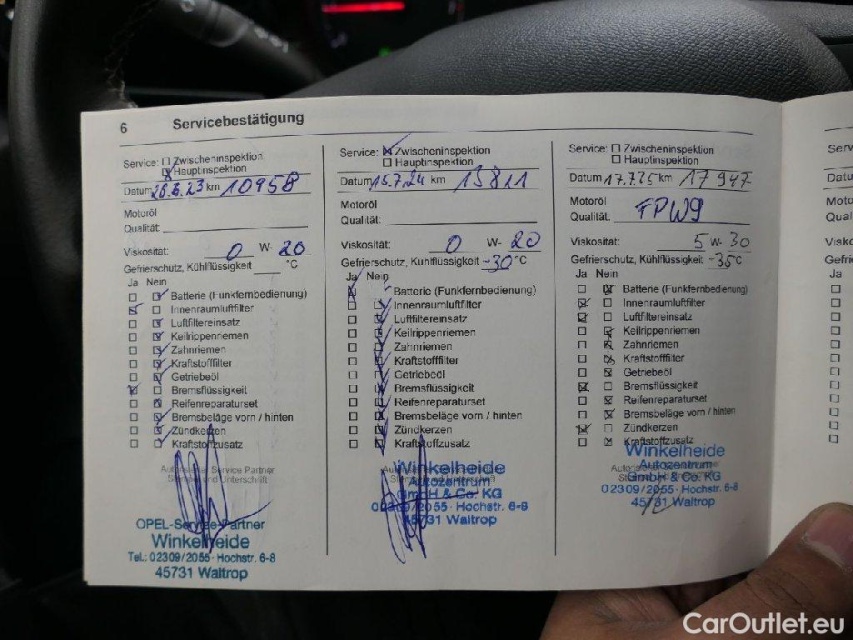 6 Servicebestätigung
Service: Zwischeninspektion
Hauptinspektion
Datum 26.6.23 km 10958
Motoröl
Qualität:
Viskosität: 0 W- 20
Gefrierschutz, Kühlflüssigkeit °C
Ja Nein
Batterie (Funkfernbedienung)
Innenraumluftfilter
Luftfiltereinsatz
Keilrippenriemen
Zahnriemen
Kraftstofffilter
Getriebeöl
Bremsflüssigkeit
Reifenreparaturset
Bremsbeläge vorn / hinten
Zündkerzen
Kraftstoffzusatz
Autorisierter Service Partner
Stempel und Unterschrift
OPEL-Service-Partner
Winkelheide
Tel.: 02309/2055 · Hochstr. 6-8
45731 Waltrop
Service: Zwischeninspektion
Hauptinspektion
Datum 15.7.24 km 13811
Motoröl
Qualität:
Viskosität: 0 W- 20
Gefrierschutz, Kühlflüssigkeit -30 °C
Ja Nein
Batterie (Funkfernbedienung)
Innenraumluftfilter
Luftfiltereinsatz
Keilrippenriemen
Zahnriemen
Kraftstofffilter
Getriebeöl
Bremsflüssigkeit
Reifenreparaturset
Bremsbeläge vorn / hinten
Zündkerzen
Kraftstoffzusatz
Winkelheide
Autozentrum
GmbH & Co. KG
02309/2055 · Hochstr. 6-8
45731 Waltrop
Service: Zwischeninspektion
Hauptinspektion
Datum 17.7.25 km 17947
Motoröl
Qualität: FPW9
Viskosität: 5 W- 30
Gefrierschutz, Kühlflüssigkeit -35°C
Ja Nein
Batterie (Funkfernbedienung)
Innenraumluftfilter
Luftfiltereinsatz
Keilrippenriemen
Zahnriemen
Kraftstofffilter
Getriebeöl
Bremsflüssigkeit
Reifenreparaturset
Bremsbeläge vorn / hinten
Zündkerzen
Kraftstoffzusatz
Winkelheide
Autozentrum
GmbH & Co. KG
02309/2055 · Hochstr. 6-8
45731 Waltrop
Ja
CarOutlet.eu